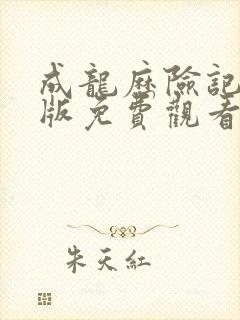 成龍歷險記
版免費觀看
朱天紅